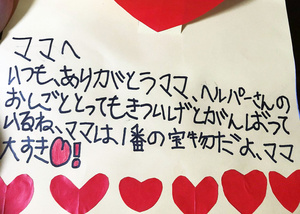 ママへ
いつも、ありがとうママ、ヘルパーさんの
おしごととってもきついけどがんばって
いるね、ママは、1番の宝物だよ、ママ
大すき!